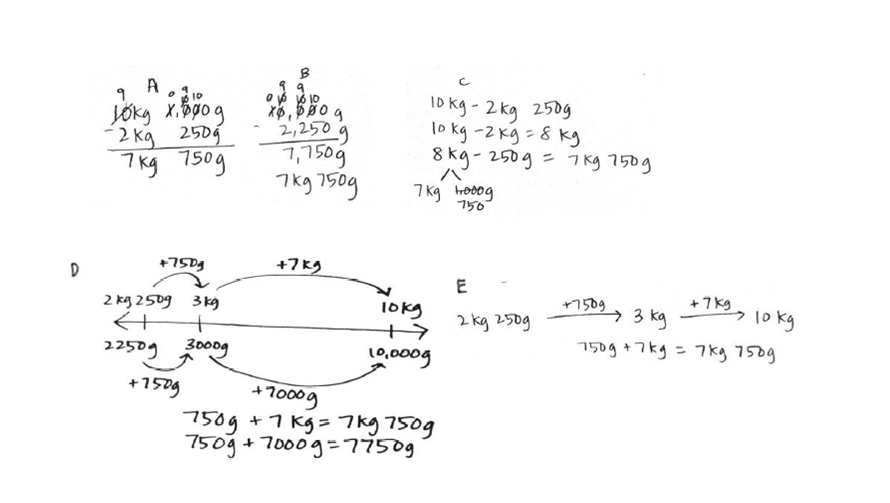 A
9 0 9 10
10kg 1,000g
-2kg 250g
7kg 750g
B
9 9
0 10 10 10
10,000g
- 2,250g
7,750g
7kg 750g
C
10kg - 2kg 250g
10kg - 2kg = 8kg
8kg - 250g = 7kg 750g
7kg 1000g
750
D
+750g +7kg
2kg 250g 3kg 10kg
2250g 3000g 10,000g
+750g +7000g
750g + 7kg = 7kg 750g
750g + 7000g = 7750g
E
+750g +7kg
2kg 250g 3kg 10kg
750g + 7kg = 7kg 750g